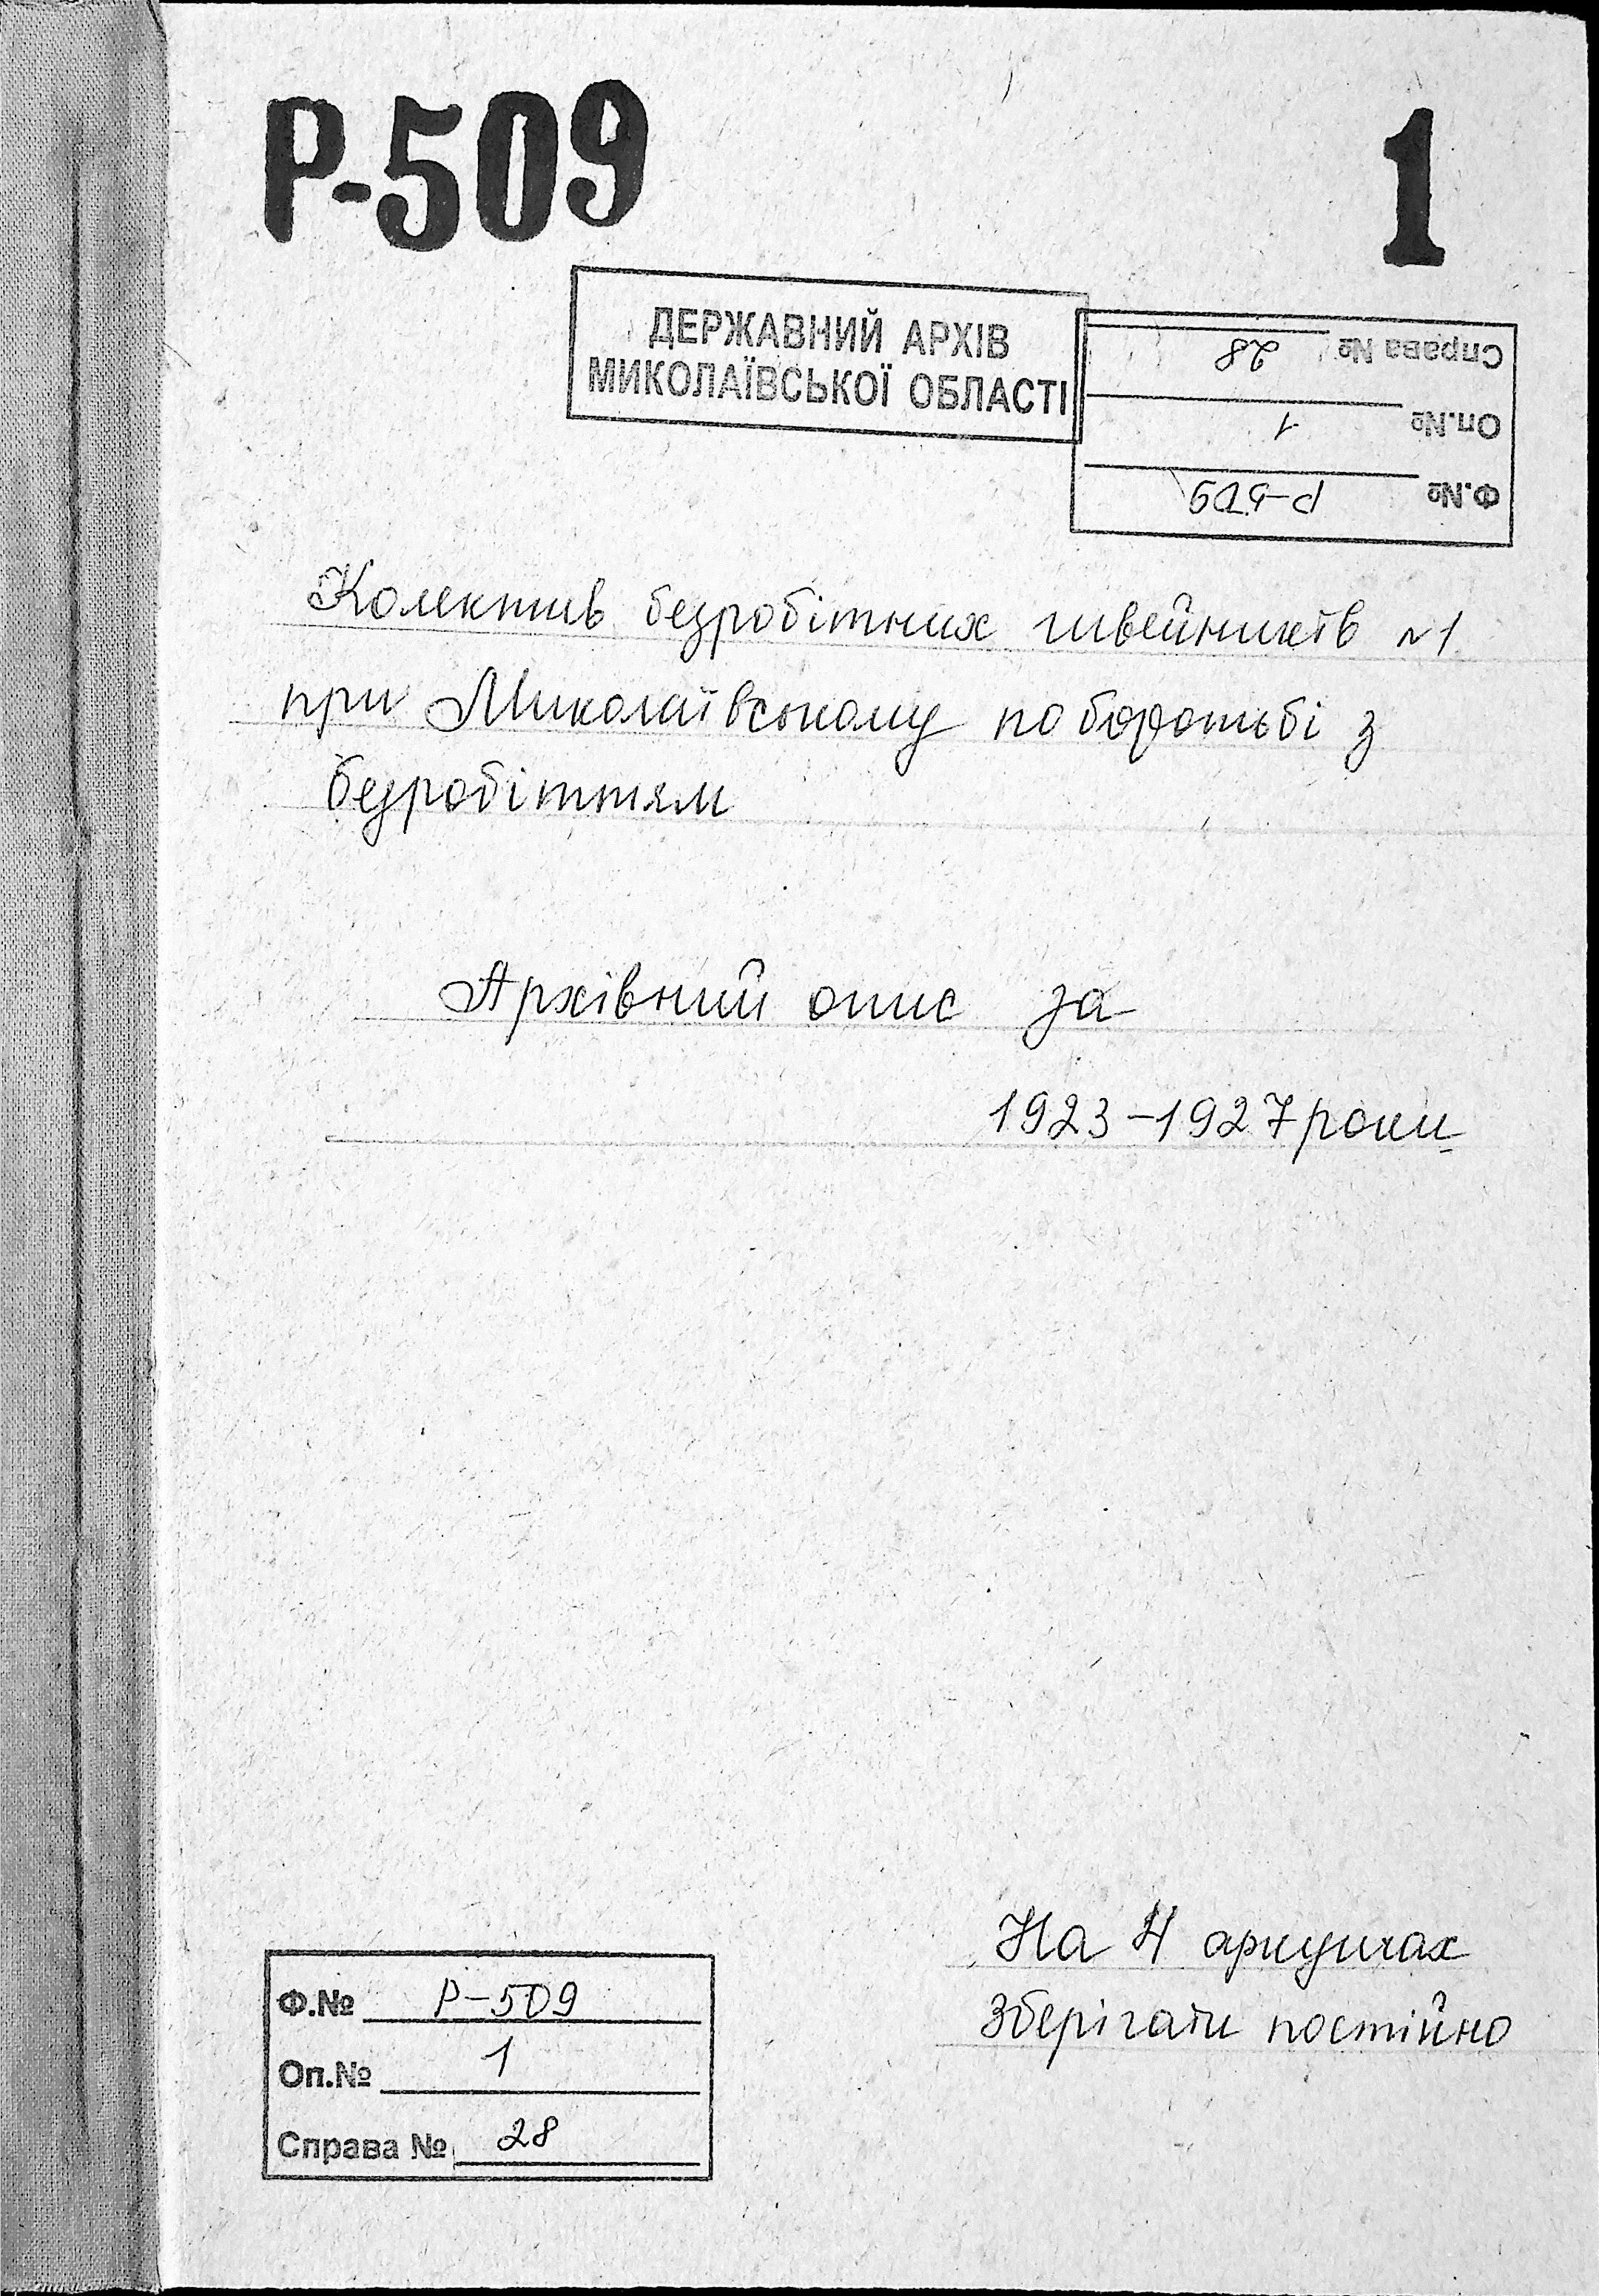 Р-509
1
ДЕРЖАВНИЙ АРХІВ
МИКОЛАЇВСЬКОЇ ОБЛАСТІ
Ф.№ Р-509
Оп.№ 1
Справа № 28
Колектив безробітних швейників №1
при Миколаївському по боротьбі з
безробіттям
Архівний опис за
1923-1927 роки
На 4 аркушах
Зберігати постійно
Ф.№ Р-509
Оп.№ 1
Справа № 28